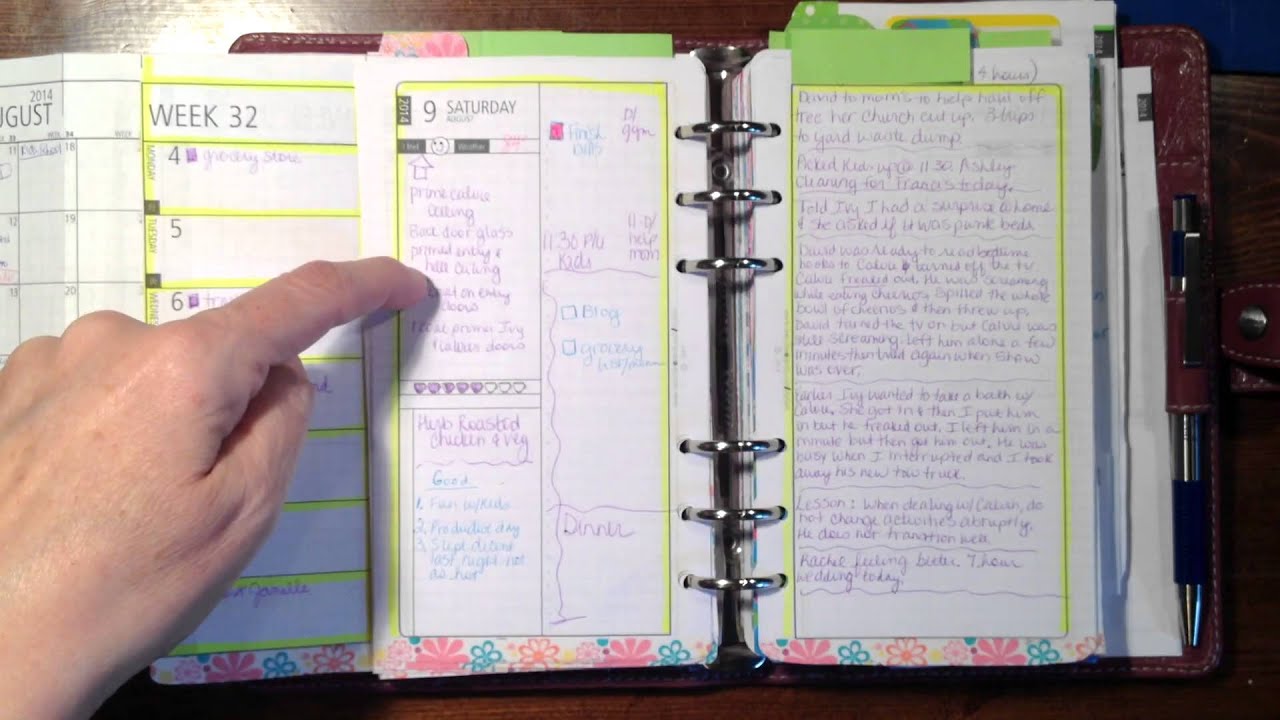 2014
AUGUST
WEEK
11
18
12
19
13
20
WEEK 32
MONDAY
4 grocery store
TUESDAY
5
WEDNES
6
Janelle
2014
9 SATURDAY
AUGUST
Weather
prime calvie
ceiling
Back door glass
primed entry &
hall ceiling
coat on entry
doors
primer Ivy
& Calvies doors
Herb Roasted
chicken & veg
Good
1. Fun w/Kids
2. Productive day
3. Slept decent
last night not
as hot
Finish
Bills
D/
11:30 P/U
Kids
11-D/
help
mom
Blog
grocery
list/menu
Dinner
4 hours)
David to mom's to help haul off
tree her church cut up. 3 trips
to yard waste dump.
Picked Kids up @ 11:30. Ashley
cleaning for Francis today.
Told Ivy I had a surprise @ home
& she asked if it was bunk beds.
David was ready to read bedtime
books to Calvie & turned off the tv.
Calvie freaked out. He was screaming
while eating cheerios. Spilled the whole
bowl of cheerios & then threw up.
David turned the tv on but Calvie was
still screaming. Left him alone a few
minutes then tried again when show
was over.
Earlier Ivy wanted to take a bath w/
Calvie. She got in & then I put him
in but he freaked out. I left him in a
minute but then got him out. He was
busy when I interrupted and I took
away his new tow truck.
Lesson: When dealing w/Calvin, do
not change activities abruptly.
He does not transition well.
Rachel feeling better. 7 hour
wedding today.
2014
2014